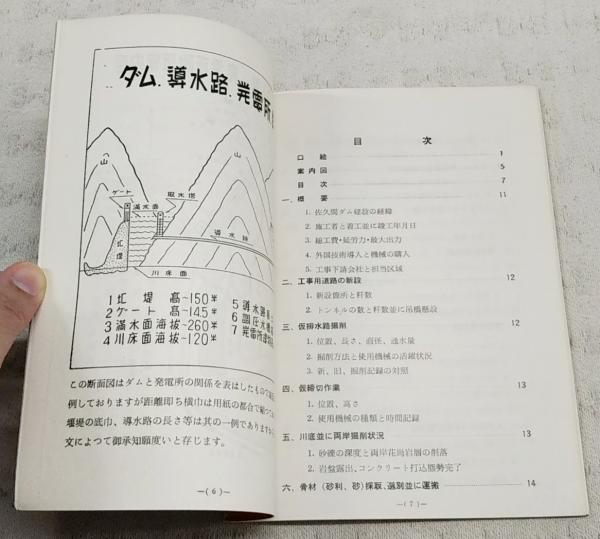 ダム.導水路.発電所
山
山
ゲート
取水塔
満水面
堰堤
導水路
川床面
1 堰堤 高~150米
2 ゲート 高~14.5米
3 満水面海抜~260米
4 川床面海抜~120米
5 導水路
6 調圧水槽
7 発電所
この断面図はダムと発電所の関係を表はしたもので
例しておりますが距離即ち横巾は用紙の都合で縮つて
堰堤の底巾、導水路の長さ等は其の一例でありますか
文によつて御承知願度いと存じます。
―( 6 )―
目 次
口絵 1
案内図 5
目次 7
一、概要 11
1. 佐久間ダム建設の経緯
2. 施工者と着工並に竣工年月日
3. 総工費・延労力・最大出力
4. 外国技術導入と機械の購入
5. 工事下請会社と担当区域
二、工事用道路の新設 12
1. 新設箇所と粁数
2. トンネルの数と粁数並に吊橋懸設
三、仮排水路掘削 12
1. 位置、長さ、直径、通水量
2. 掘削方法と使用機械の活躍状況
3. 新、旧、掘削記録の対照
四、仮締切作業 13
1. 位置、高さ
2. 使用機械の種類と時間記録
五、川底並に両岸掘削状況 13
1. 砂礫の深度と両岸花崗岩層の削落
2. 岩盤露出、コンクリート打込態勢完了
六、骨材(砂利、砂)採取、選別並に運搬 14
―( 7 )―